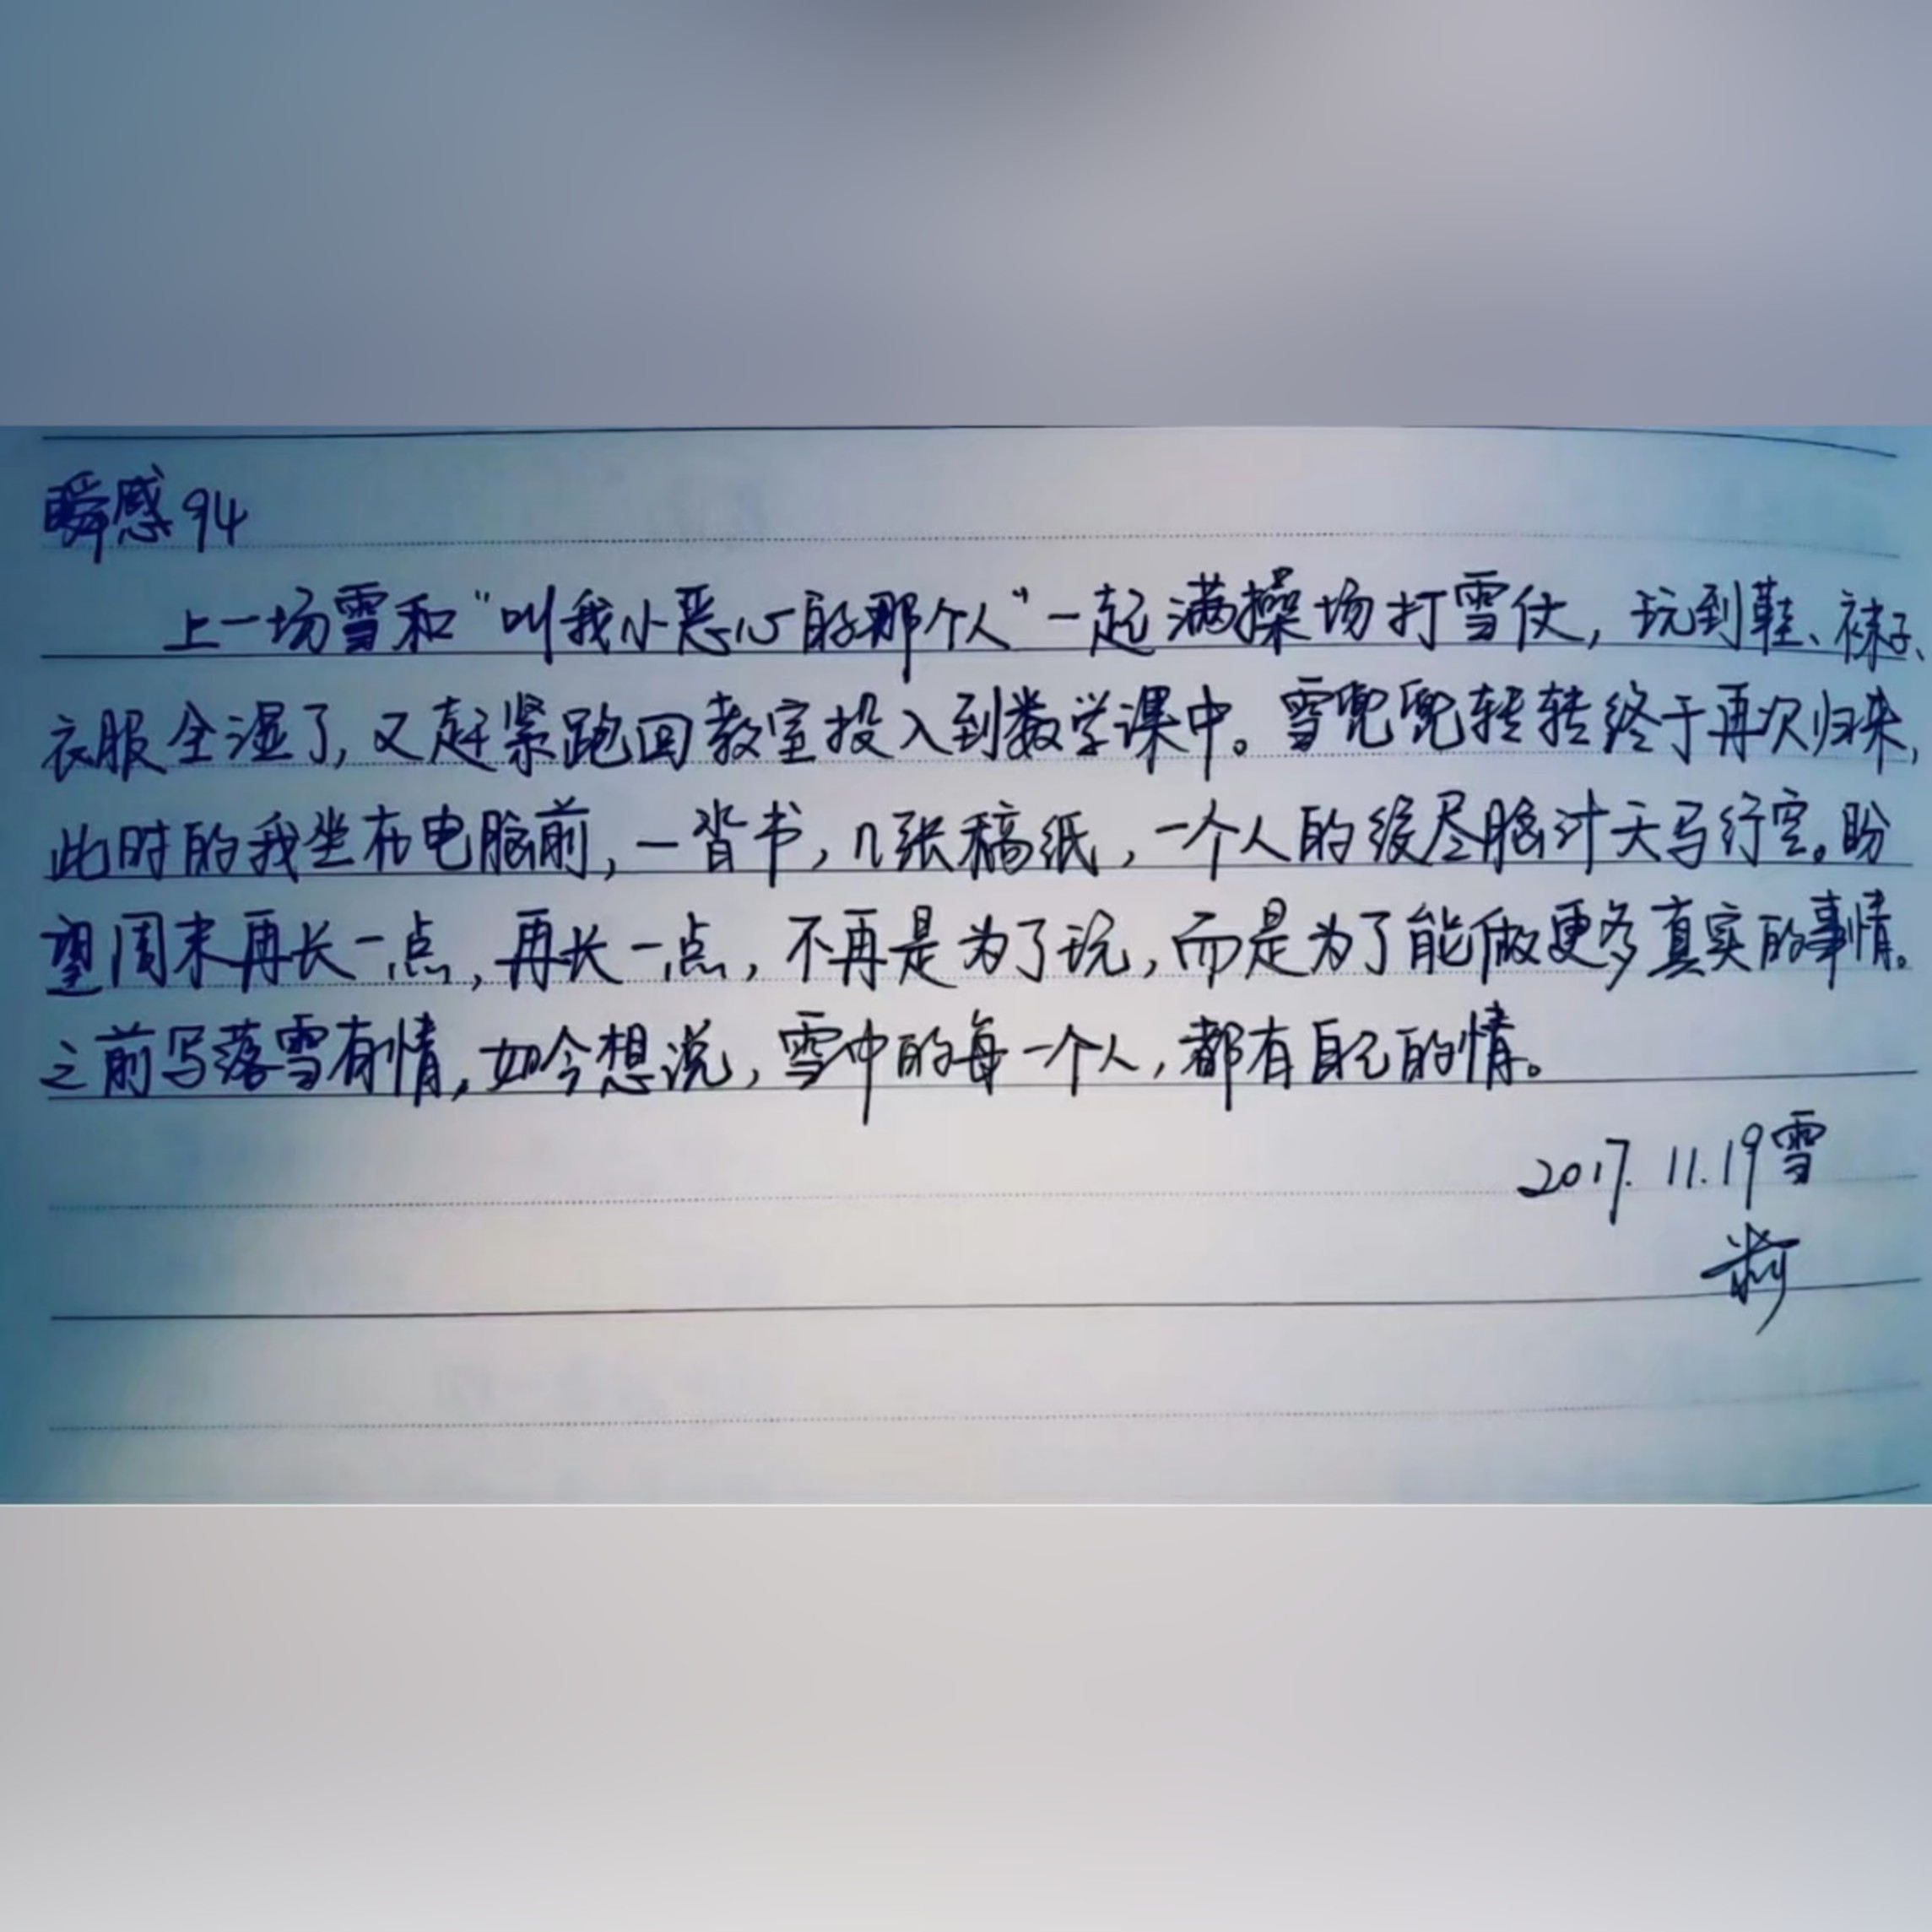 瞬感94
上一场雪和“叫我小恶心的那个人”一起满操场打雪仗，玩到鞋、袜子、
衣服全湿了，又赶紧跑回教室投入到数学课中。雪兜兜转转终于再次归来，
此时的我坐在电脑前，一沓书，几张稿纸，一个人的绞尽脑汁天马行空。盼
望周末再长一点，再长一点，不再是为了玩，而是为了能做更多真实的事情。
之前写落雪有情，如今想说，雪中的每一个人，都有自己的情。
2017.11.19雪